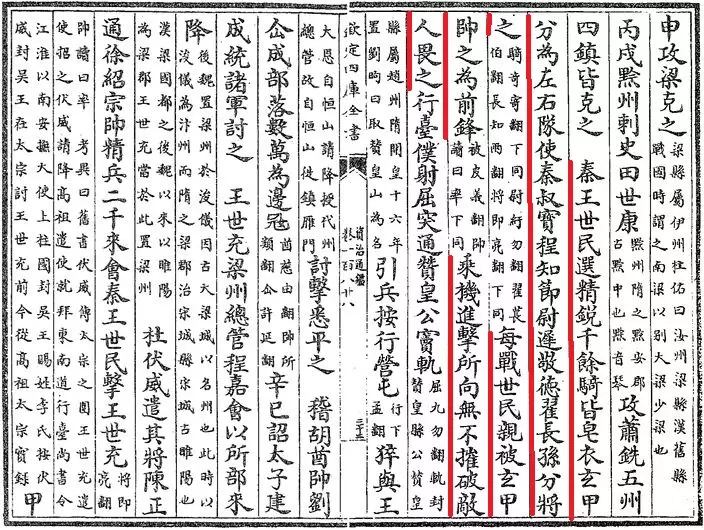 申攻梁克之梁縣屬伊州杜佑曰汝州梁縣漢舊縣戰國時謂之南梁以別大梁少梁也
丙戌黔州刺史田世康黔州隋之黔安郡古黔中也黔音琴攻蕭銑五州
四鎮皆克之 秦王世民選精銳千餘騎皆皂衣玄甲
分為左右隊使秦叔寶程知節尉遲敬德翟長孫分將
之騎奇寄翻下同尉紆勿翻翟萇伯翻長知兩翻將即亮翻下同每戰世民親被玄甲
帥之為前鋒被皮義翻帥讀曰率下同乘機進擊所向無不摧破敵
人畏之行臺僕射屈突通贊皇公竇軌屈九勿翻軌封贊皇縣公贊皇
縣屬趙州隋開皇十六年置劉昫曰取贊皇山為名引兵按行營屯行下孟翻猝與王
欽定四庫全書
資治通鑑
卷一百八十八
大恩自恒山請降授代州總管改自恒山徙鎮雁門討擊悉平之 稽胡酋帥劉
仚成部落數萬為邊寇酋慈由翻帥所類翻仚許延翻辛巳詔太子建
成統諸軍討之 王世充梁州總管程嘉會以所部來
降後魏置梁州於浚儀因古大梁城以名州也此時以浚儀為汴州而隋之梁郡治宋城縣宋城古睢陽也
漢梁國都之後魏以來以睢陽為梁郡王世充當於此置梁州 杜伏威遣其將陳正
通徐紹宗帥精兵二千來會秦王世民擊王世充將即亮翻
帥讀曰率 考異曰舊書伏威傳太宗之圍王世充遣使招之伏威請降高祖遣使就拜東南道行臺尚書令
江淮以南安撫大使上柱國封吳王賜姓李氏按伏威封吳王在太宗討王世充前今從高祖太宗實錄 甲